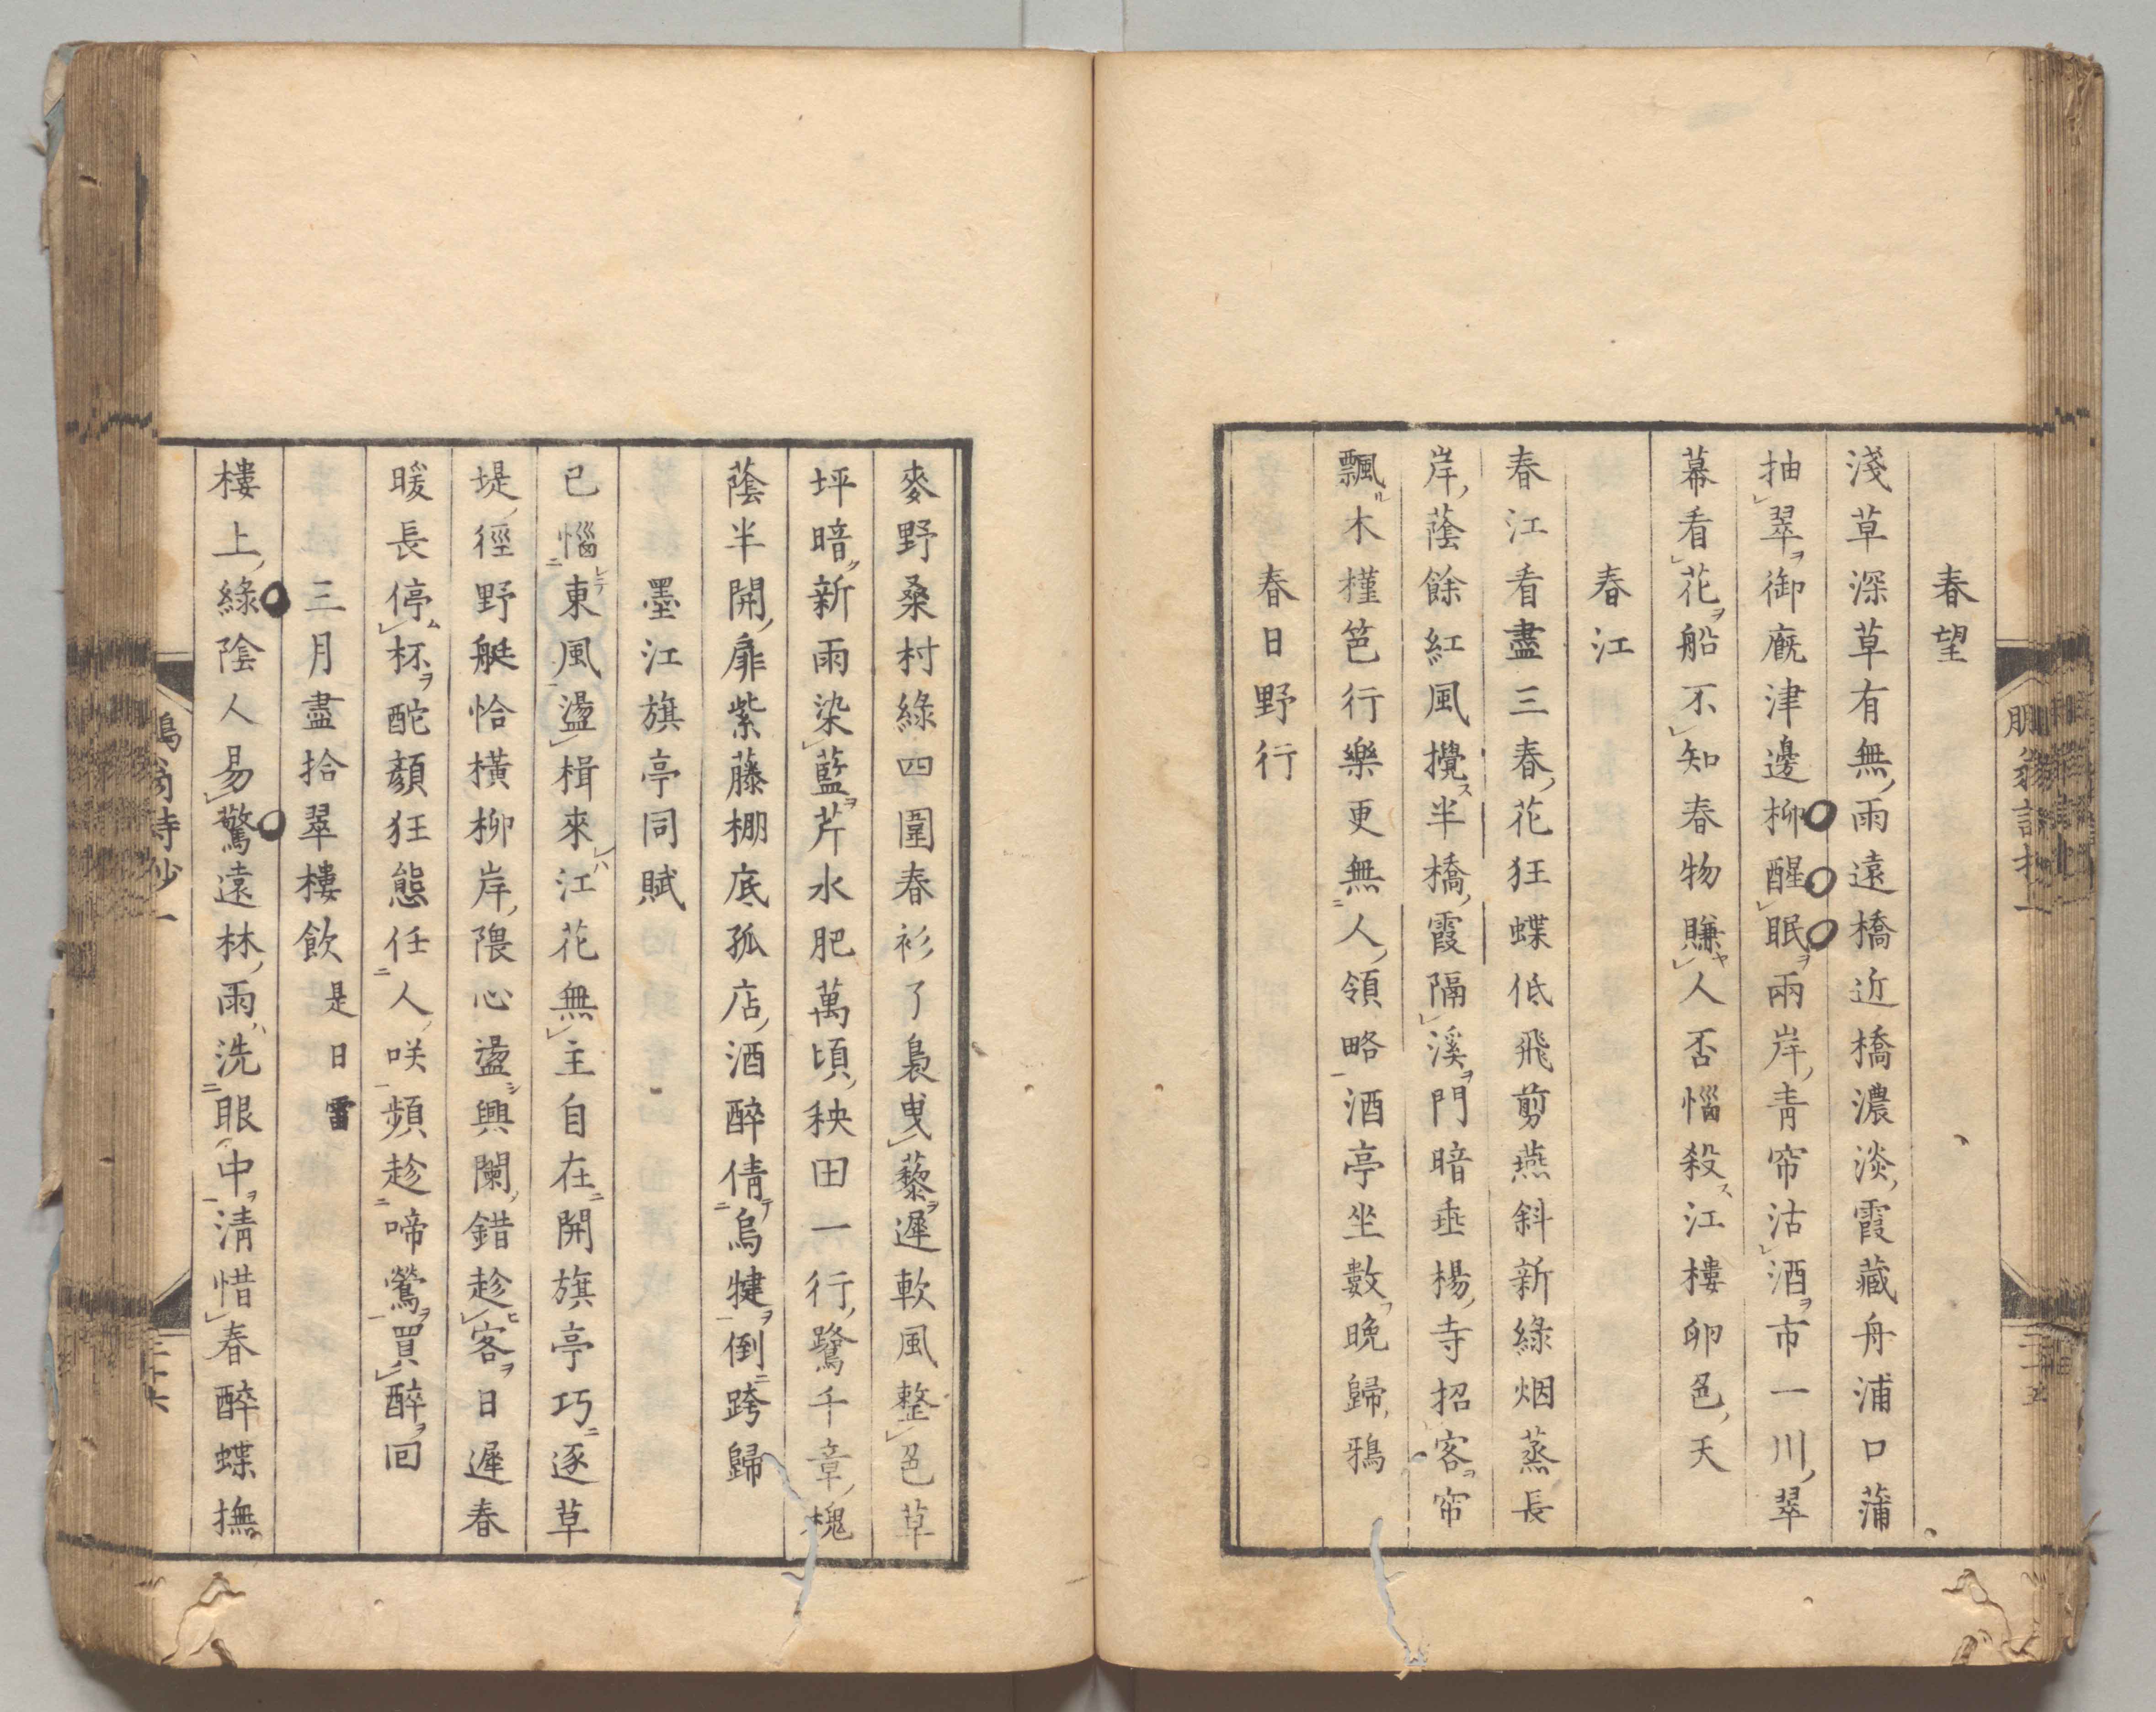 春望
淺草深草有無雨遠橋近橋濃淡霞藏舟浦口蒲
抽翠御廐津邊柳醒眠兩岸青帘沽酒市一川翠
幕看花船不知春物賺人否惱殺江樓卵色天
春江
春江看盡三春花狂蝶低飛剪燕斜新綠烟蒸長
岸蔭餘紅風攪半橋霞隔溪門暗垂楊寺招客帘
飄木槿笆行樂更無人領略酒亭坐數晚歸鴉
春日野行
麥野桑村綠四圍春衫了裊曳藜遲軟風整色草
坪暗新雨染藍芹水肥萬頃秧田一行鷺千章槐
蔭半開扉紫藤棚底孤店酒醉倩烏犍倒跨歸
墨江旗亭同賦
已惱東風盪楫來江花無主自在開旗亭巧逐草
堤徑野艇恰橫柳岸隈心盪興闌錯趁客日遲春
暖長停杯酡顏狂態任人咲頻趁啼鶯買醉回
三月盡拾翠樓飲是日雷
樓上綠陰人易驚遠林雨洗眼中清惜春醉蝶撫
翁詩鈔一
三十六